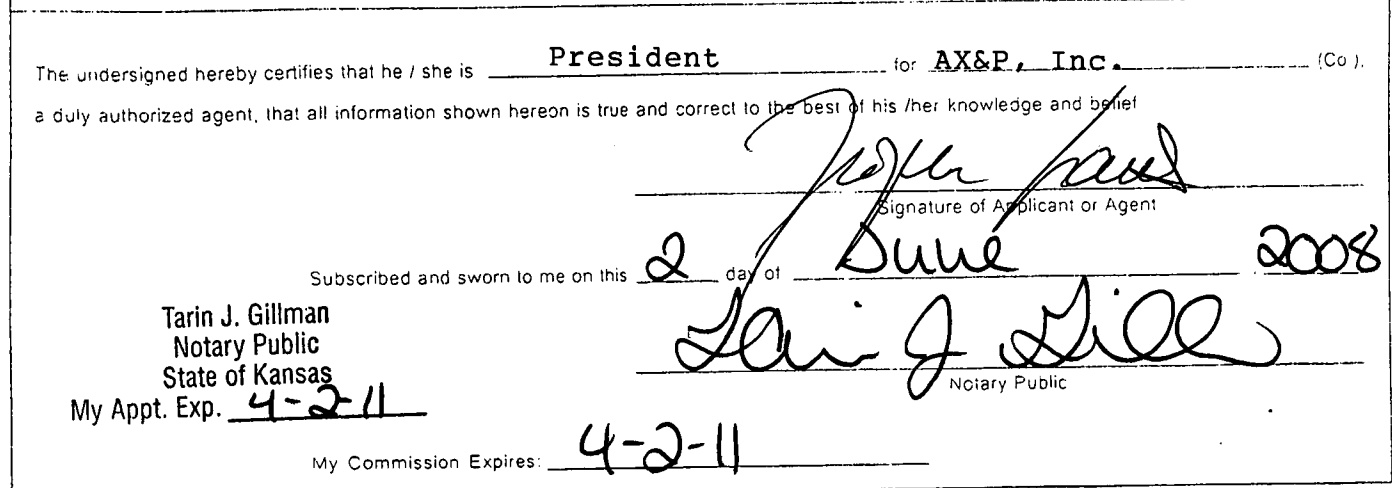 The undersigned hereby certifies that he / she is President for AX&P, Inc. (Co ).
a duly authorized agent, that all information shown hereon is true and correct to the best of his /her knowledge and belief
Signature of Applicant or Agent
Subscribed and sworn to me on this 2 day of June 2008
Tarin J. Gillman
Notary Public
State of Kansas
My Appt. Exp. 4-2-11
Tarin J Gill
Notary Public
My Commission Expires: 4-2-11